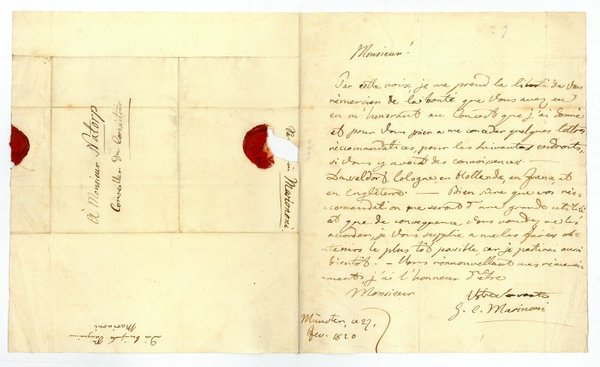 à Monsieur Natorp
Conseiller du Consistoire
Marinoni
Marinoni
Monsieur!
Par cette voix, je me prend la liberté de vous
remercier de la bonté que vous avez eu
en m'honorant au Concert que j'ai donné
et pour vous prier a me conceder quelques lettres
recomandatices, pour les suivantes endroits,
si vous y avait des connoisences
Dusseldorf, Cologne, en Hollande, en France, et
en Engleterre. — Bien sûre que vos rec-
comandation me seront d'une grande utilité
et que de consequence vous voudez me les
acorder, je vous supplie a me les faires ob-
tenir le plus tôt possible, car je partirai aussi
bientôt. — Vous rennouvellant mes remerci-
ments, j'ai l'honneur d'être
Monsieur
Votre Servante
G. C. Marinoni
Münster, ce 27,
fev. 1820